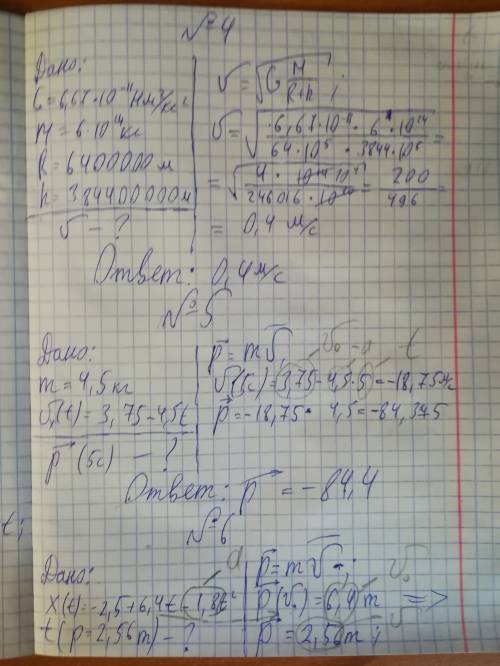 №4
Дано:
G=6,67·10⁻¹¹Нм²/кг²
M=6·10¹⁴кг
R=6400000м
h=384400000м
v-?
v=√(G M/(R+h));
v=√(6,67·10⁻¹¹·6·10¹⁴/(64·10⁵·3844·10⁵))=
=200/496=
=0,4 м/с
Ответ: 0,4м/с
№5
Дано:
m=4,5кг
v(t)=3,75-4,5t
p⃗(5с)-?
p⃗=mv⃗;
v₀ -a t
v(5с)=3,75-4,5·5=-18,75м/с
p⃗=-18,75·4,5=-84,375
Ответ: p⃗=-84,4
№6
t;
Дано:
a
x(t)=-2,5+6,4t-1,8t²
t(p=2,56m)-?
p⃗=mv⃗;
v₀
p⃗(v₀)=6,4m =>
v
p⃗=2,56m;